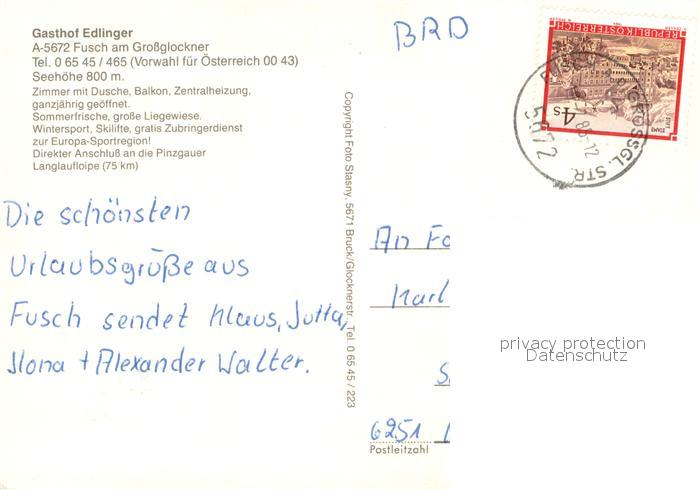 Gasthof Edlinger
A-5672 Fusch am Großglockner
Tel. 0 65 45 / 465 (Vorwahl für Österreich 00 43)
Seehöhe 800 m.
Zimmer mit Dusche, Balkon, Zentralheizung,
ganzjährig geöffnet.
Sommerfrische, große Liegewiese.
Wintersport, Skilifte, gratis Zubringerdienst
zur Europa-Sportregion!
Direkter Anschluß an die Pinzgauer
Langlaufloipe (75 km)
Die schönsten
Urlaubsgrüße aus
Fusch sendet Klaus, Jutta,
Ilona + Alexander Walter.
Copyright Foto Stasny, 5671 Bruck/Glocknerstr., Tel. 0 65 45 / 223
BRD
REPUBLIK ÖSTERREICH
4 S
STIFT STAMS
GROSSGL. STR.
5672
An Fa
Karl
S
6251
Postleitzahl
privacy protection
Datenschutz